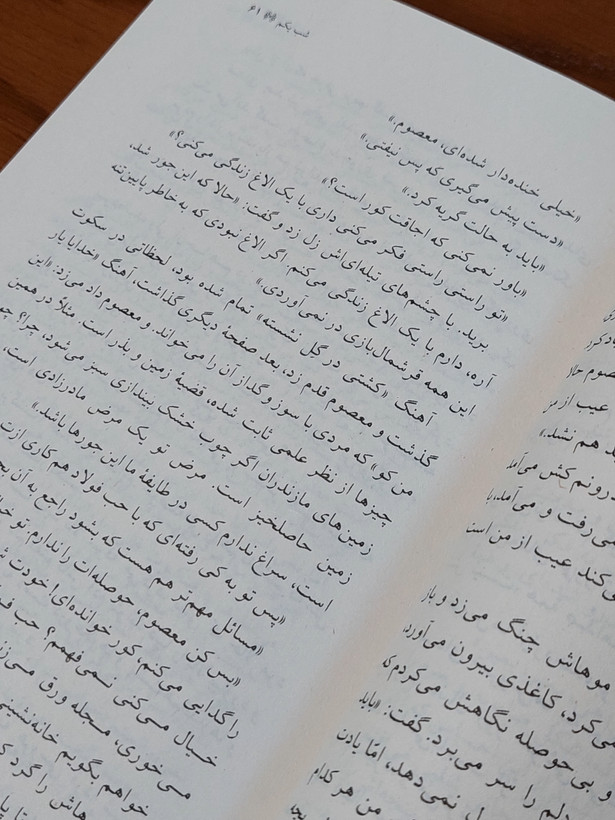 شب یکم ۴۱
«خیلی خنده‌دار شده‌ای، معصوم.»
«دست پیش می‌گیری که پس نیفتی.»
«باید به حالت گریه کرد.»
«باور نمی‌کنی که اجاقت کور است؟»
«تو راستی راستی فکر می‌کنی داری با یک الاغ زندگی می‌کنی؟»
برید. با چشم‌های تیله‌ای‌اش زل زد و گفت: «حالا که این جور شد،
آره، دارم با یک الاغ زندگی می‌کنم. اگر الاغ نبودی که به خاطر پایین‌تنه
این همه قرشمال‌بازی در نمی‌آوردی.»
آهنگ «کشتی در گل نشسته» تمام شده بود، لحظاتی در سکوت
گذشت و معصوم قدم زد، بعد صفحهٔ دیگری گذاشت، آهنگ «خدایا یار
من کو» که مردی با سوز و گداز آن را می‌خواند. و معصوم داد می‌زد: «این
چیزها از نظر علمی ثابت شده، قضیهٔ زمین و بذر است. مثلاً در همین
زمین‌های مازندران اگر چوب خشک بیندازی سبز می‌شود، چرا؟
زمین حاصلخیز است. مرض تو یک مرض مادرزادی است.
است، سراغ ندارم کسی در طایفهٔ ما این جورها باشد.»
«پس تو به کی رفته‌ای که با حب فولاد هم کاری ازت
«مسائل مهم‌تر هم هست که بشود راجع به آن
«بس کن معصوم، حوصله‌ات را ندارم. تو
را گدایی می‌کنم، کور خوانده‌ای! خودت
خیال می‌کنی نمی‌فهمم؟ حب
می‌خوری، مجله ورق
خواهم بگویم خانه‌نشینی
هاش را گرد
عیب از من
هم نشد.»
رونم کش می‌آمد
می‌رفت و می‌آمد،
کند عیب از من است
موهاش چنگ می‌زد و باز
می‌کرد، کاغذی بیرون می‌آورد،
و بی‌حوصله نگاهش می‌کردم
دلم را سر می‌برد. گفت: «باید
نمی‌دهد، امّا یادت
من هر کدام